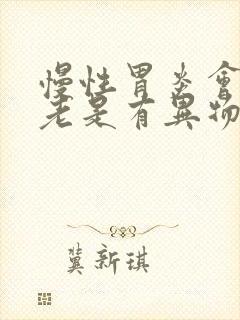 慢性胃炎會
老是有異物
冀新琪